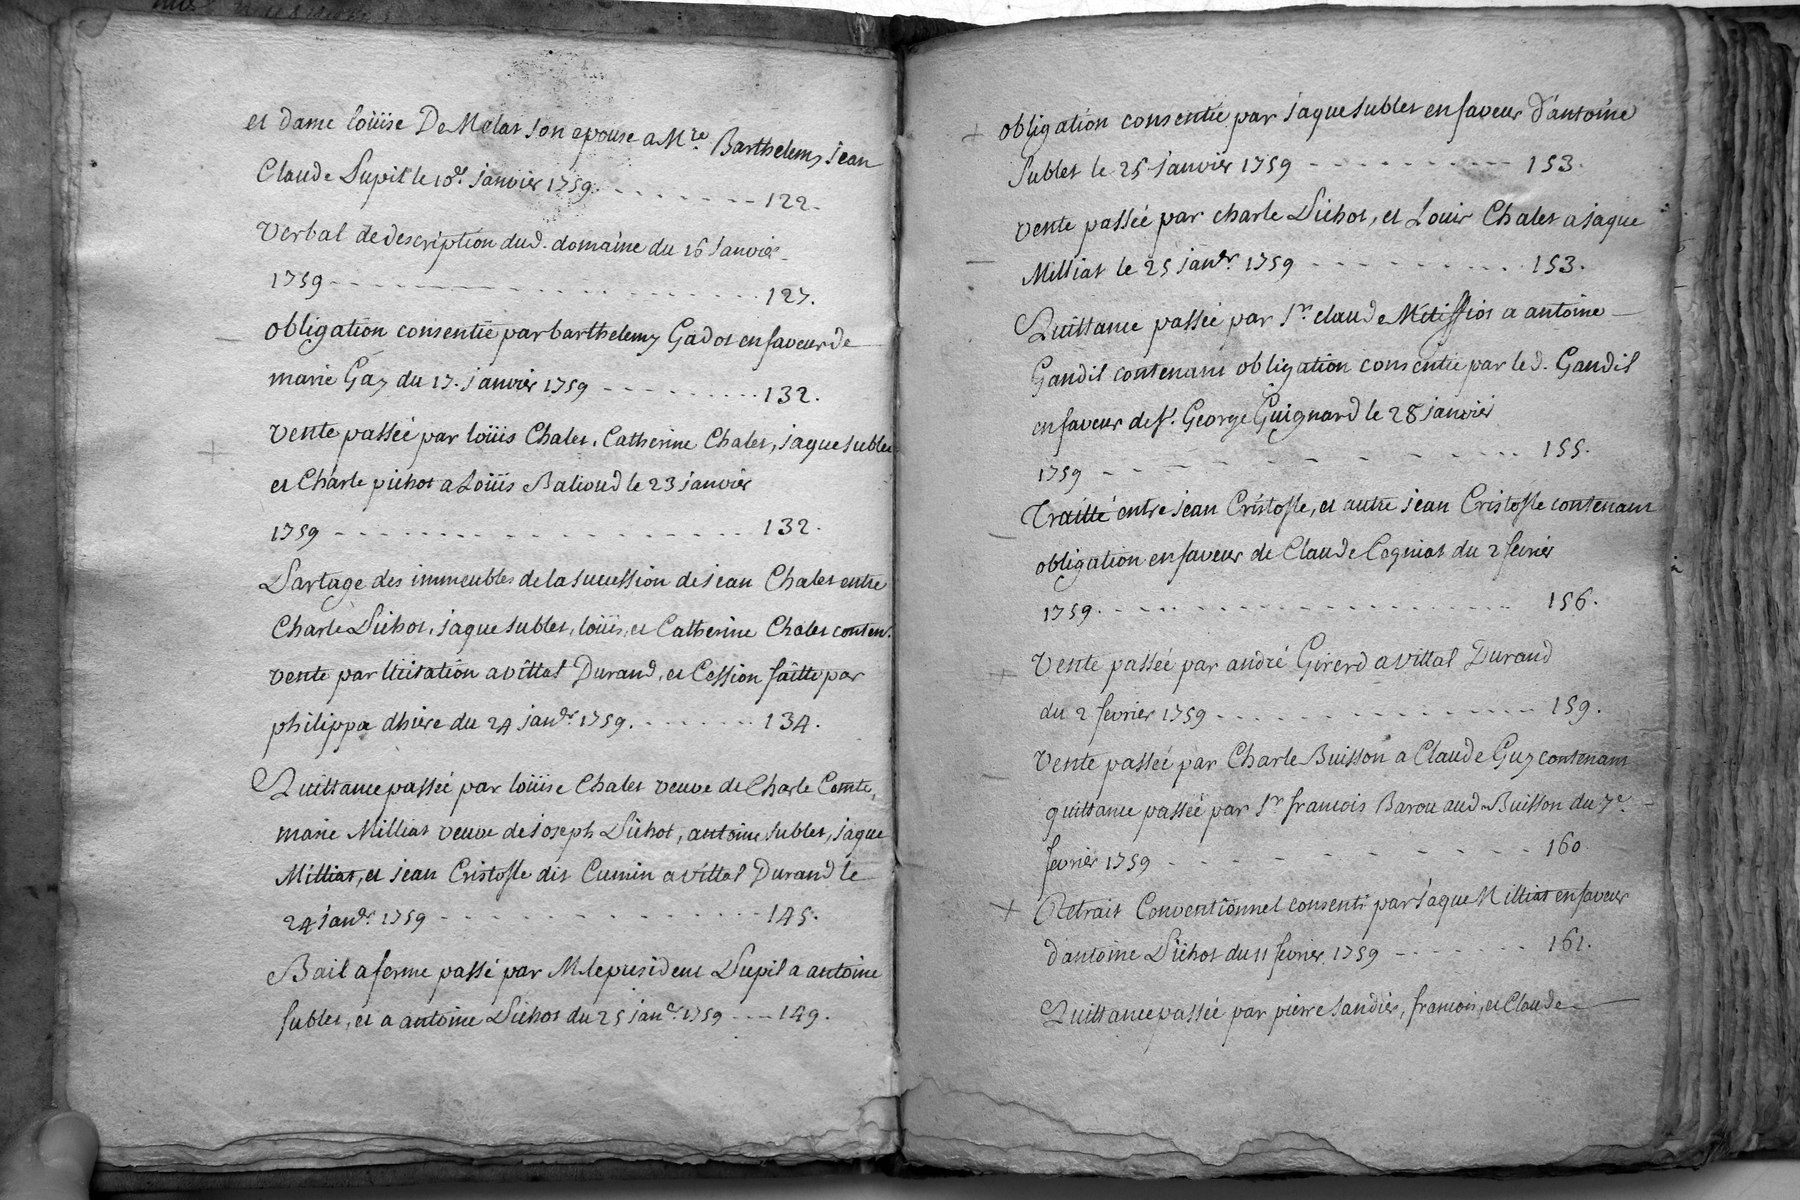 et dame loüise De Melat son epouse a Mre. Barthelemy jean
Claude Pupil le 10e. janvier 1759. 122.
Verbal de description dud. domaine du 16 Janvier
1759 127.
obligation consentie par barthelemy Gadot en faveur de
marie Gay du 17. janvier 1759 132.
vente passée par loüis Chalet, Catherine Chalet, jaque sublet
et Charle pichot a Loüis Balioud le 23 janvier
1759 132.
Partage des immeubles de la succession de jean Chalet entre
Charle Pichot, jaque sublet, loüis, et Catherine Chalet conten.
vente par licitation a vittal Durand, et Cession faitte par
philippa dhiere du 24 janvr. 1759. 134.
Quittance passée par loüise Chalet veuve de Charle Comte,
marie Milliat veuve de joseph Pichot, antoine sublet, jaque
Milliat, et jean Cristofle dit Cumin a vittal Durand le
24 janvr. 1759 145.
Bail a ferme passé par M. le president Pupil a antoine
sublet, et a antoine Pichot du 25 janvr. 1759 149.
obligation consentie par jaque sublet en faveur d'antoine
Sublet le 25 janvier 1759 153.
vente passée par charle Pichot, et Louis Chalet a jaque
Milliat le 25 janvr. 1759 153.
Quittance passée par Sr. claude a antoine
Gandil contenant obligation consentie par led. Gandil
en faveur de sr. George Guignard le 28 janvier
1759 155.
Traitté entre jean Cristofle, et autre jean Cristofle contenant
obligation en faveur de Claude Cogniat du 2 fevrier
1759. 156.
Vente passée par andré Girerd a vittal Durand
du 2 fevrier 1759 159.
Vente passée par Charle Buisson a Claude Guy contenant
quittance passée par Sr. francois Barou aud. Buisson du 7e.
fevrier 1759 160
Retrait Conventionnel consenti par jaque Milliat en faveur
d'antoine Pichot du 11 fevrier 1759 161.
Quittance passée par pierre sandier, francois, et Claude